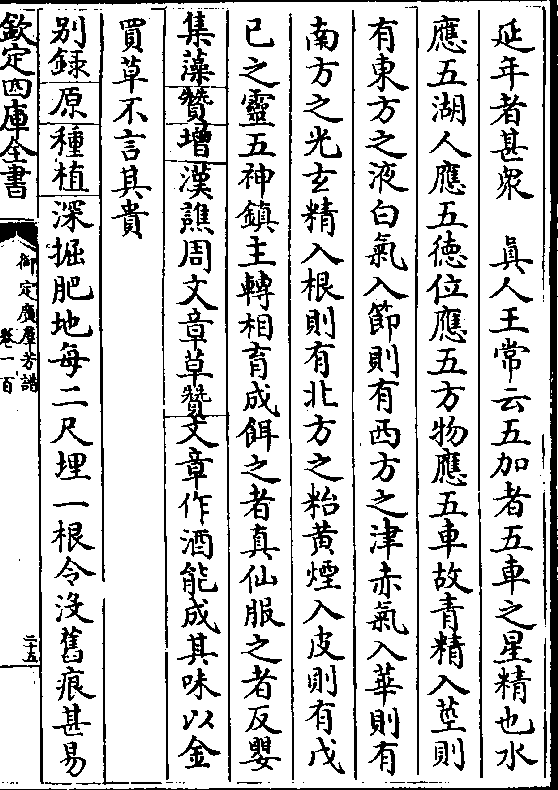 延年者甚衆　真人王常云五加者五車之星精也水
應五湖人應五徳位應五方物應五車故青精入莖則
有東方之液白氣入節則有西方之津赤氣入華則有
南方之光玄精入根則有北方之粘黄煙入皮則有戊
已之靈五神鎮主轉相育成餌之者真仙服之者反嬰
集藻贊增漢譙周文章草贊文章作酒能成其味以金
買草不言其貴
别録原種植深掘肥地每二尺埋一根令沒舊痕甚易
欽定四庫全書
御定廣群芳譜
卷一百
二十五